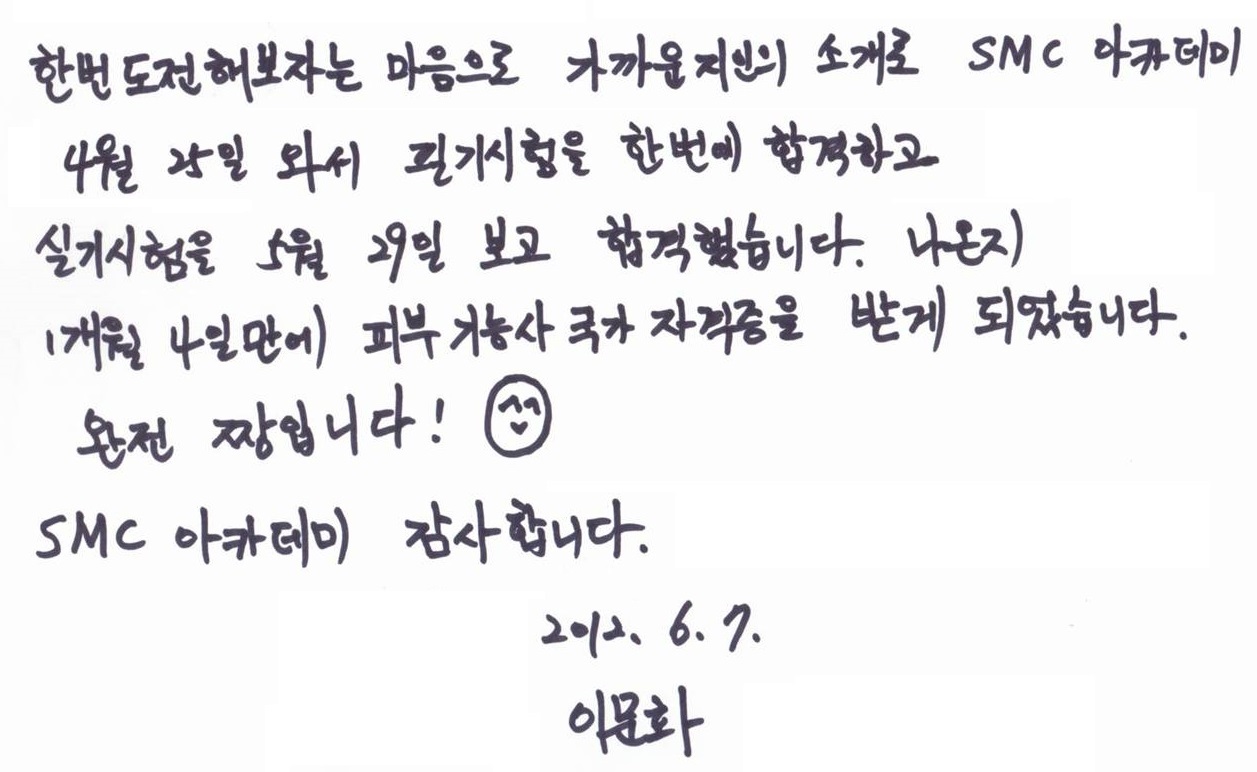 한번 도전해보자는 마음으로 가까운 지인의 소개로 SMC 아카데미
4월 25일 와서 필기시험을 한번에 합격하고
실기시험을 5월 29일 보고 합격했습니다. 나온지
1개월 4일만에 피부기능사 국가 자격증을 받게 되었습니다.
완전 짱입니다!
SMC 아카데미 감사합니다.
2012. 6. 7.
이문화